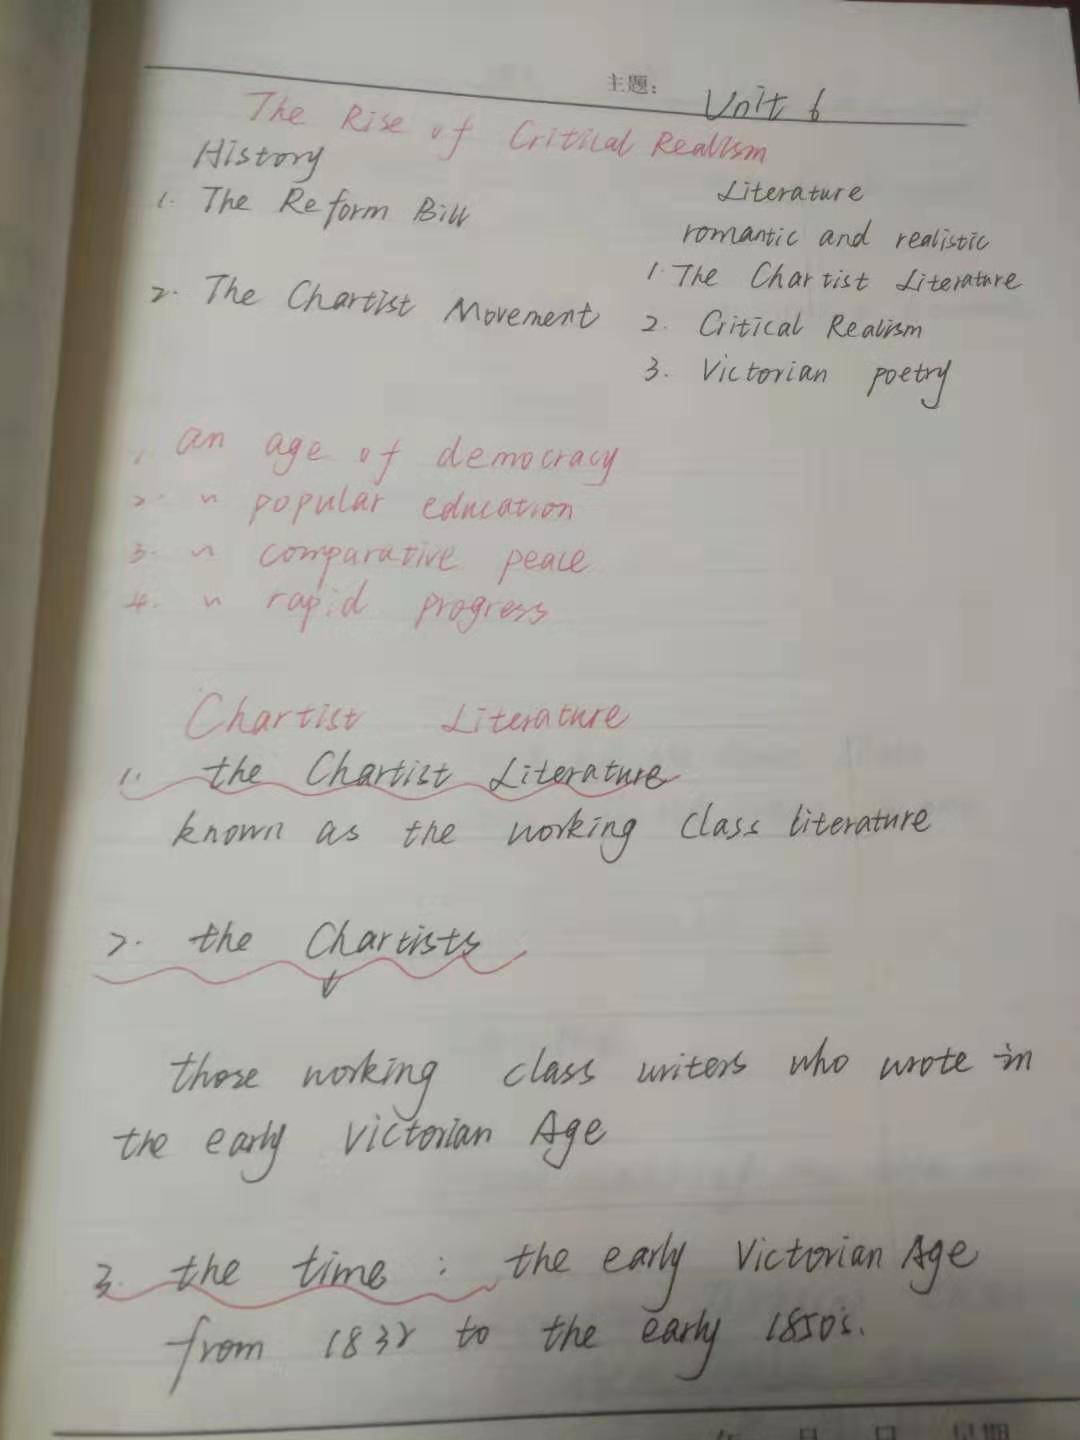 主题： Unit 6
The Rise of Critical Realism
History
1. The Reform Bill
2. The Chartist Movement
Literature
romantic and realistic
1. The Chartist Literature
2. Critical Realism
3. Victorian poetry
1. an age of democracy
2. " popular education
3. " comparative peace
4. " rapid progress
Chartist Literature
1. the Chartist Literature
known as the working class literature
2. the Chartists
those working class writers who wrote in
the early Victorian Age
3. the time : the early Victorian Age
from 1832 to the early 1850's.
年 月 日 星期